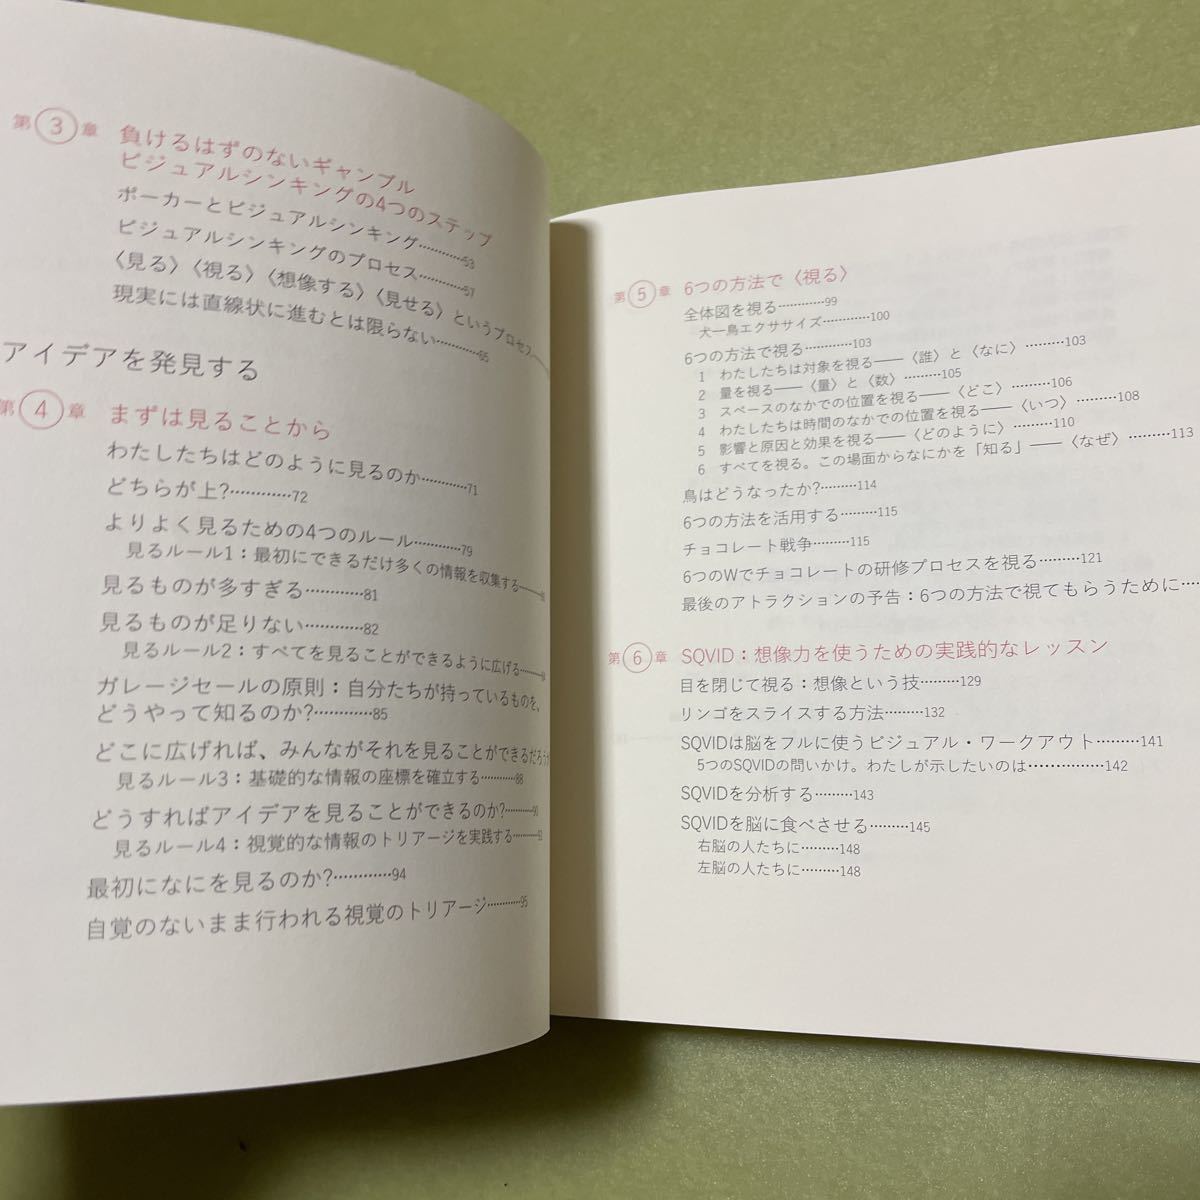 第3章 負けるはずのないギャンブル
ビジュアルシンキングの4つのステップ
ポーカーとビジュアルシンキング…………53
ビジュアルシンキングのプロセス…………57
〈見る〉〈視る〉〈想像する〉〈見せる〉というプロセス
現実には直線状に進むとは限らない…………65
アイデアを発見する
第4章 まずは見ることから
わたしたちはどのように見るのか…………71
どちらが上?…………72
よりよく見るための4つのルール…………79
見るルール1：最初にできるだけ多くの情報を収集する
見るものが多すぎる…………81
見るものが足りない…………82
見るルール2：すべてを見ることができるように広げる
ガレージセールの原則：自分たちが持っているものを、
どうやって知るのか?…………85
どこに広げれば、みんながそれを見ることができるだろうか
見るルール3：基礎的な情報の座標を確立する…………88
どうすればアイデアを見ることができるのか?…………90
見るルール4：視覚的な情報のトリアージを実践する…………93
最初になにを見るのか?…………94
自覚のないまま行われる視覚のトリアージ…………95
第5章 6つの方法で〈視る〉
全体図を視る…………99
犬ー鳥エクササイズ…………100
6つの方法で視る…………103
1 わたしたちは対象を視る——〈誰〉と〈なに〉………103
2 量を視る——〈量〉と〈数〉………105
3 スペースのなかでの位置を視る——〈どこ〉………106
4 わたしたちは時間のなかでの位置を視る——〈いつ〉………108
5 影響と原因と効果を視る——〈どのように〉………110
6 すべてを視る。この場面からなにかを「知る」——〈なぜ〉………113
鳥はどうなったか?………114
6つの方法を活用する………115
チョコレート戦争………115
6つのWでチョコレートの研修プロセスを視る………121
最後のアトラクションの予告：6つの方法で視てもらうために……
第6章 SQVID：想像力を使うための実践的なレッスン
目を閉じて視る：想像という技………129
リンゴをスライスする方法………132
SQVIDは脳をフルに使うビジュアル・ワークアウト………141
5つのSQVIDの問いかけ。わたしが示したいのは……………142
SQVIDを分析する………143
SQVIDを脳に食べさせる………145
右脳の人たちに………148
左脳の人たちに………148